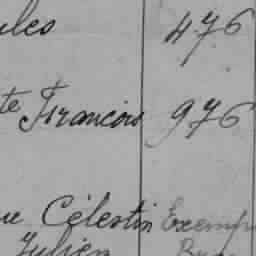 ules 476
te Francois 976
ue Célestin Exemp
Julien